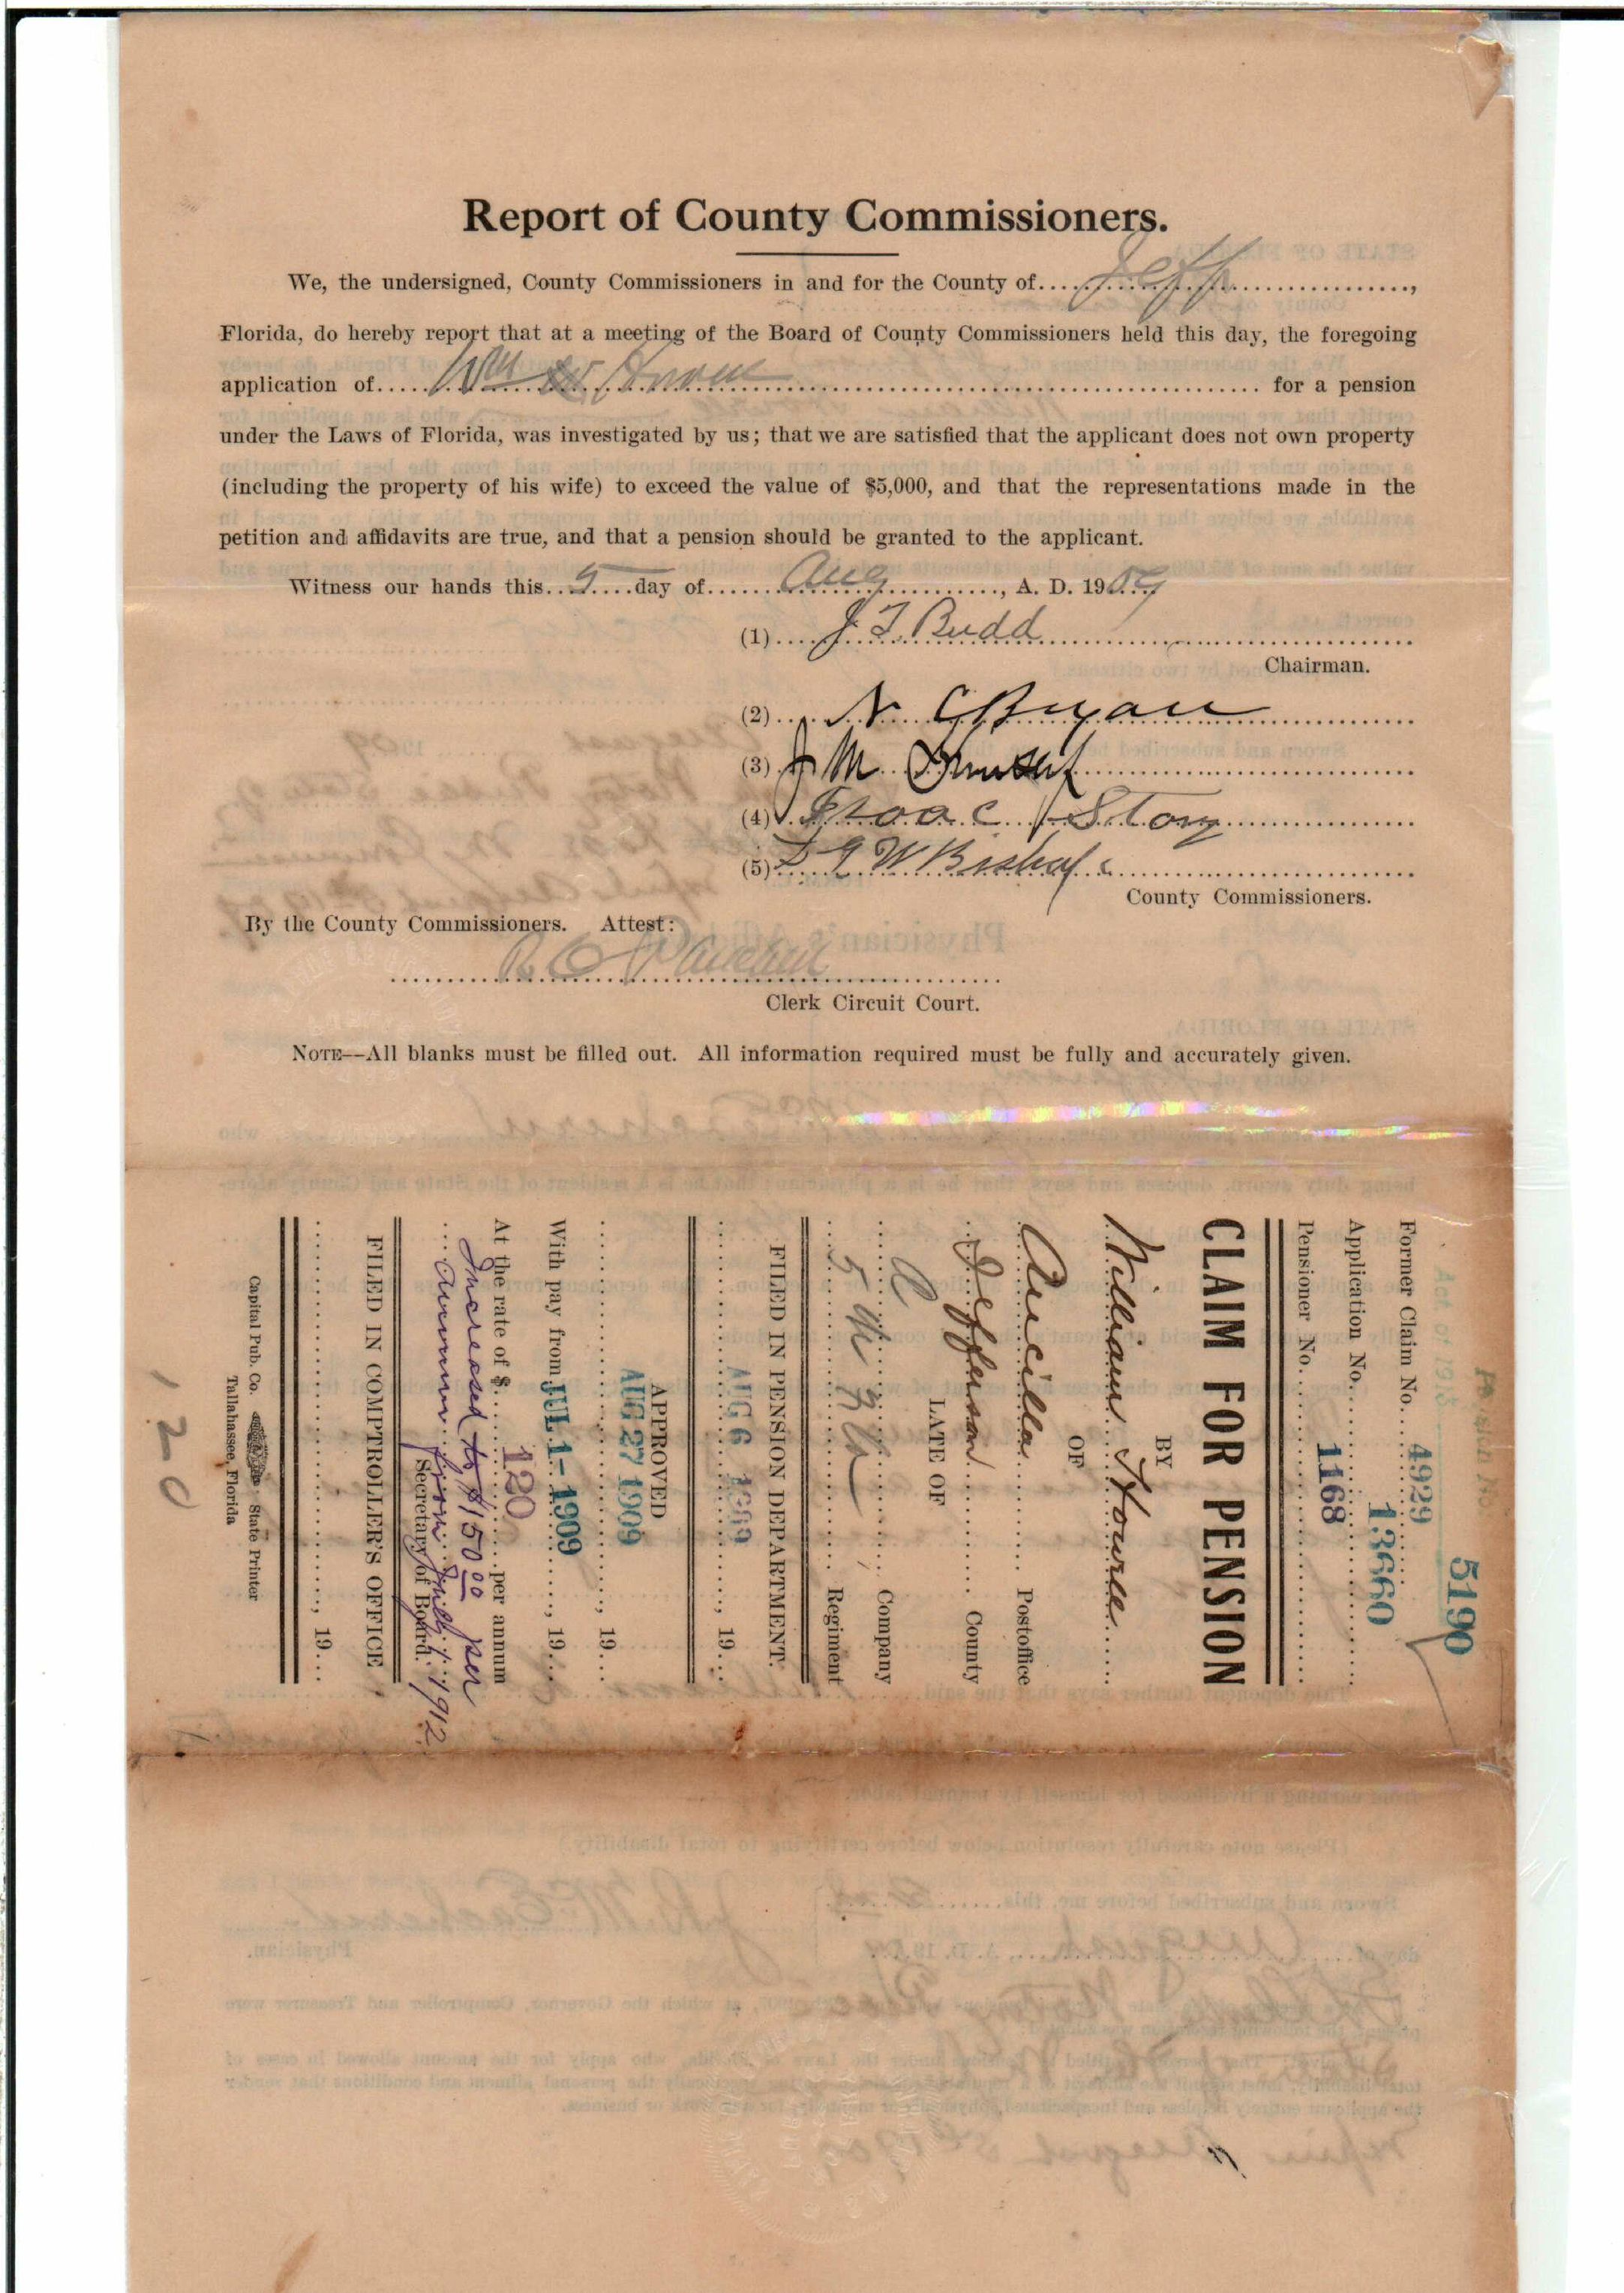 Report of County Commissioners.
We, the undersigned, County Commissioners in and for the County of Jeff,
Florida, do hereby report that at a meeting of the Board of County Commissioners held this day, the foregoing
application of Wm for a pension
under the Laws of Florida, was investigated by us; that we are satisfied that the applicant does not own property
(including the property of his wife) to exceed the value of $5,000, and that the representations made in the
petition and affidavits are true, and that a pension should be granted to the applicant.
Witness our hands this 5 day of Aug, A. D. 1909
(1) J T Budd
Chairman.
(2) N C Bryan
(3) J M
(4) Isaac Story
(5) W Bishop
County Commissioners.
By the County Commissioners. Attest:
R C
Clerk Circuit Court.
NOTE--All blanks must be filled out. All information required must be fully and accurately given.
Act of 1913
5190
Former Claim No. 4929
Application No. 13660
Pensioner No. 1168
CLAIM FOR PENSION
BY
William Howell
OF
Aucilla Postoffice
Jefferson County
LATE OF
A Company
5 Regiment
FILED IN PENSION DEPARTMENT.
AUG 6 1909, 19
APPROVED
AUG 27 1909, 19
With pay from JUL 1-1909, 19
At the rate of $ 120 per annum
Increased to $150 00 per
annum from July 1 1912
Secretary of Board.
FILED IN COMPTROLLER'S OFFICE
, 19
Capital Pub. Co. State Printer
Tallahassee, Florida
120